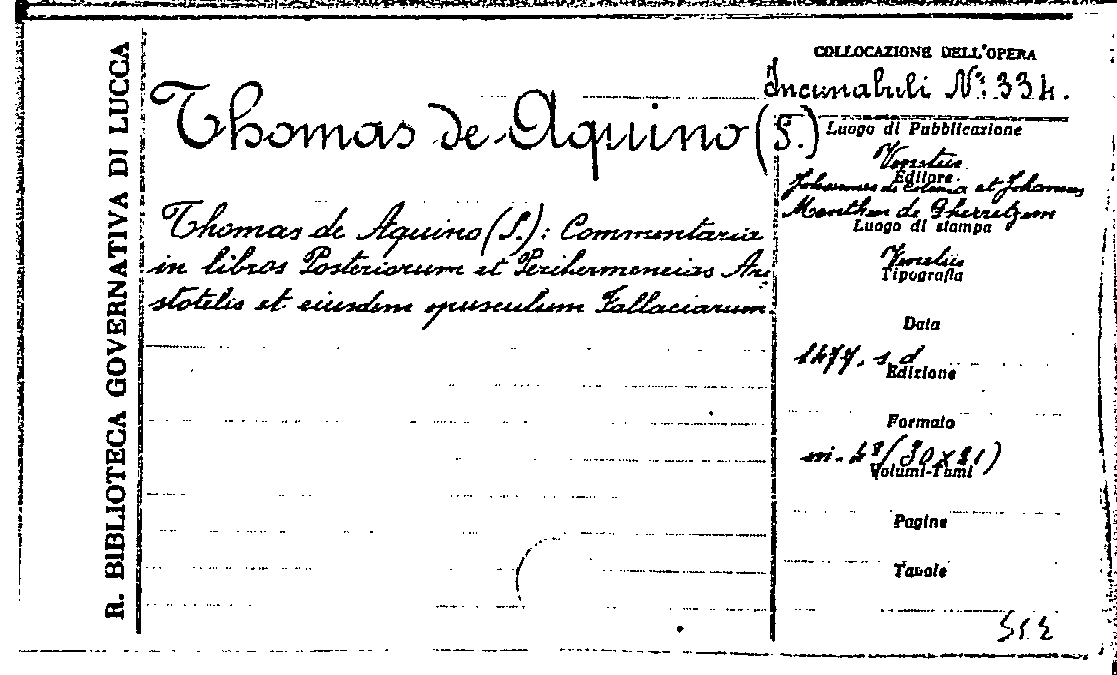 R. BIBLIOTECA GOVERNATIVA DI LUCCA
Thomas de Aquino (S.)
Thomas de Aquino (S.): Commentaria
in libros Posteriorum et Perihermeneias Ari-
stotelis et eiusdem opusculum Fallaciarum.
COLLOCAZIONE DELL'OPERA
Incunabuli N.: 334.
Luogo di Pubblicazione
Venetiis
Editore
Johannes de Colonia et Johannes
Manthen de Gherretzem
Luogo di stampa
Venetiis
Tipografia
Data
1477. s. d
Edizione
Formato
(30x21)
Volumi-Tomi
Pagine
Tavole